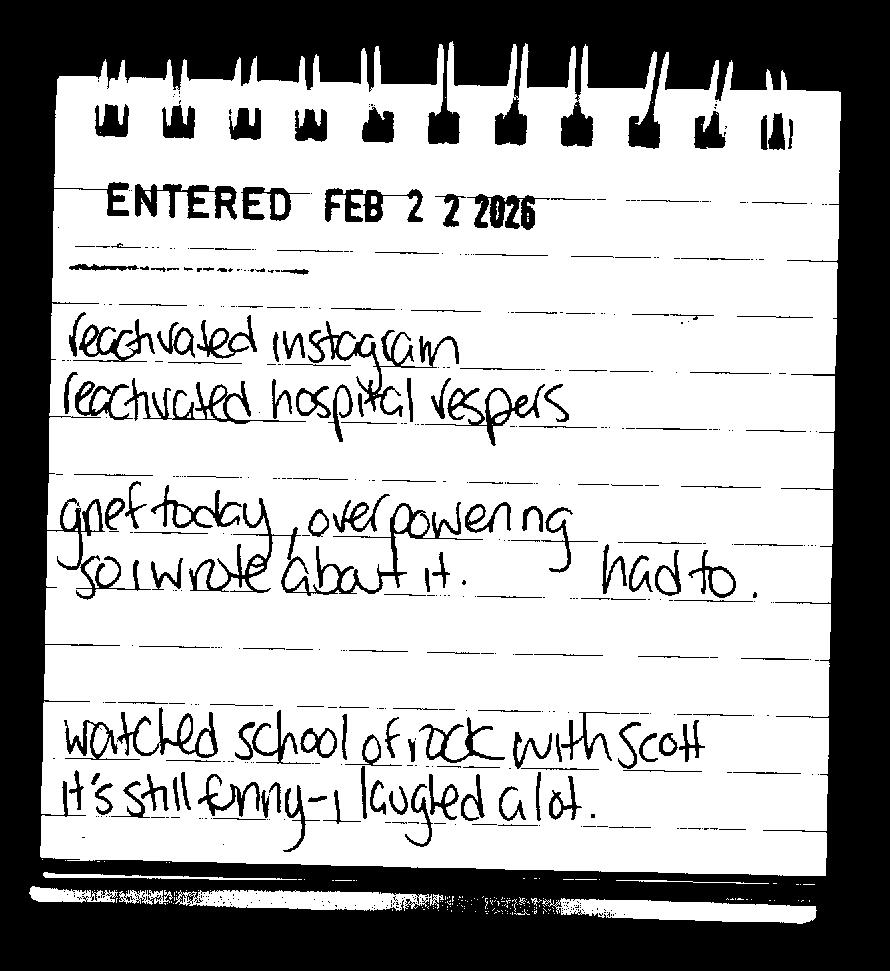 ENTERED FEB 2 2 2026
reactivated instagram
reactivated hospital vespers
grief today, overpowering
so i wrote about it. had to.
watched school of rock with scott
it's still funny-i laughed a lot.